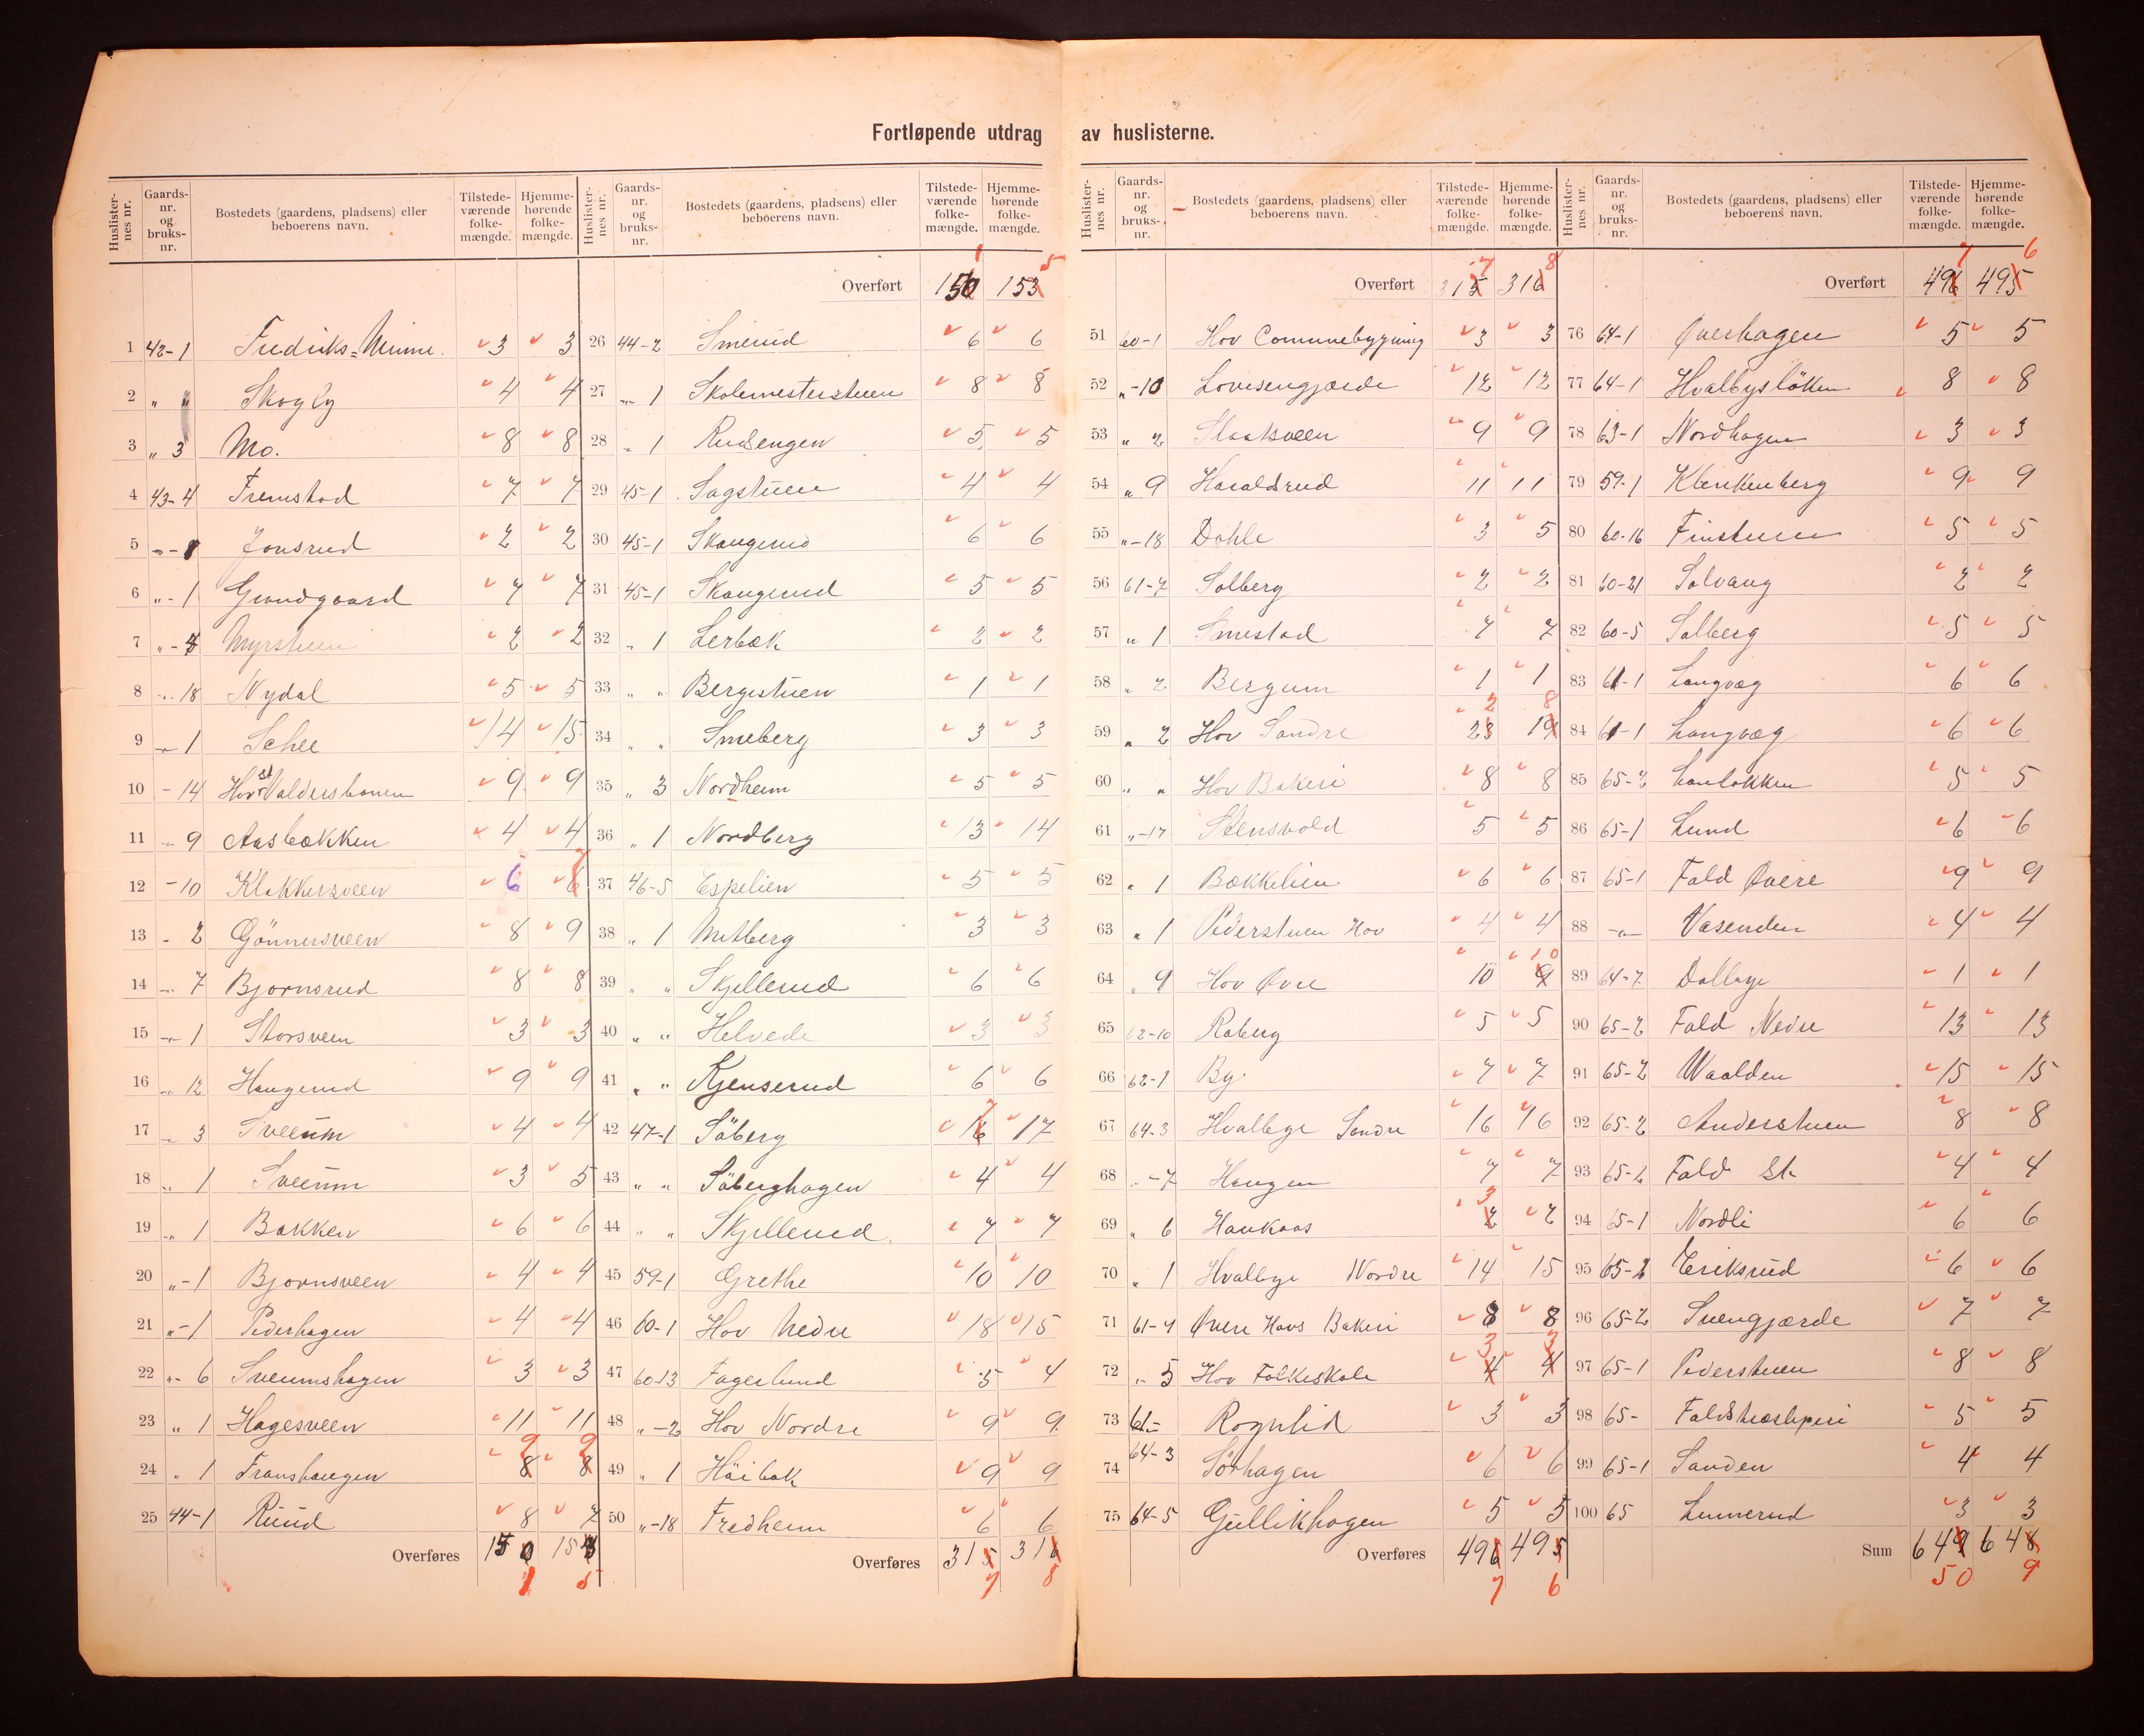 Fortløpende utdrag av huslisterne.
Huslisternes nr. Gaards-nr. og bruks-nr. Bostedets (gaardens, pladsens) eller beboerens navn. Tilstedeværende folkemængde. Hjemmehørende folkemængde.
1 42-1 Fredriks-Minne. 3 3
2 " " Skogly 4 4
3 " 3 Mo. 8 8
4 43-4 Fremstad 7 7
5 Jonsrud 2 2
6 "-1 Grandgaard 7 7
7 Myrstuen 2 2
8 18 Nydal 5 5
9 1 Schee 14 15
10 -14 Hov st Valdersbanen 9 9
11 9 Aasbækken 4 4
12 -10 Klakkersveen 6 6 7
13 - 2 Gönnersveen 8 9
14 7 Bjørnsrud 8 8
15 1 Storsveen 3 3
16 12 Haugerud 9 9
17 3 Sveeum 4 4
18 1 Sveeum 3 5
19 1 Bakken 6 6
20 "-1 Bjørnsveen 4 4
21 "-1 Pederhagen 4 4
22 "- 6 Sveumshagen 3 3
23 " 1 Hagesveen 11 11
24 " 1 Franshaugen 8 9 8 9
25 44-1 Ruud 8 7
Overføres 150 1 153 5
Huslisternes nr. Gaards-nr. og bruks-nr. Bostedets (gaardens, pladsens) eller beboerens navn. Tilstedeværende folkemængde. Hjemmehørende folkemængde.
Overført 150 1 153 5
26 44-2 Smerud 6 6
27 1 Skolemesterstuen 8 8
28 1 Rudsengen 5 5
29 45-1 Sagstuen 4 4
30 45-1 Skaugerud 6 6
31 45-1 Skaugerud 5 5
32 1 Lerbæk 2 2
33 " " Bergestuen 1 1
34 " " Smeberg 3 3
35 " 3 Nordheim 5 5
36 " 1 Nordberg 13 14
37 46-5 Espelien 5 5
38 " 1 Mitberg 3 3
39 " " Skjellerud 6 6
40 " " Helvede 3 3
41 " " Kjenserud 6 6
42 47-1 Söberg 16 7 17
43 " " Söberghagen 4 4
44 " " Skjellerud. 7 7
45 59-1 Grethe 10 10
46 60-1 Hov Nedre 18 15
47 60-13 Fagerlund 5 4
48 "-2 Hov Nordre 9 9
49 " 1 Höibak 9 9
50 "-18 Fredheim 6 6
Overføres 315 7 316 8
Huslisternes nr. Gaards-nr. og bruks-nr. Bostedets (gaardens, pladsens) eller beboerens navn. Tilstedeværende folkemængde. Hjemmehørende folkemængde.
Overført 315 7 316 8
51 60-1 Hov Communebygning 3 3
52 "-10 Lovisengjærde 12 12
53 " 2 Slaatsveen 9 9
54 " 9 Haraldsrud 11 11
55 "-18 Dahle 3 5
56 61-7 Solberg 2 2
57 " 1 Smestad 7 7
58 " 2 Bergum 1 1
59 " 2 Hov Søndre 23 2 19 8
60 " " Hov Bakeri 8 8
61 "-17 Stensvold 5 5
62 " 1 Bækkelien 6 6
63 " 1 Pederstuen Hov 4 4
64 " 9 Hov Øvre 10 9 10
65 62-10 Raberg 5 5
66 62-1 By. 7 7
67 64-3 Hvalbye Søndre 16 16
68 -7 Haugen 7 7
69 " 6 Haukaas 2 3 2
70 " 1 Hvalbye Nordre 14 15
71 61-4 Øvere Hovs Bakeri 8 8
72 5 Hov Folkeskole 4 3 4 3
73 61- Rognlid 3 3
74 64-3 Sörhagen 6 6
75 64-5 Gullikhagen 5 5
Overføres 496 7 495 6
Huslisternes nr. Gaards-nr. og bruks-nr. Bostedets (gaardens, pladsens) eller beboerens navn. Tilstedeværende folkemængde. Hjemmehørende folkemængde.
Overført 496 7 495 6
76 64-1 Øverhagen 5 5
77 64-1 Hvalbyslökken 8 8
78 63-1 Nordhagen 3 3
79 59-1 Klenkenberg 9 9
80 60-16 Finstuen 5 5
81 60-21 Solvang 2 2
82 60-5 Solberg 5 5
83 61-1 Langvæg 6 6
84 61-1 Langvæg 6 6
85 65-2 Lanløkken 5 5
86 65-1 Lund 6 6
87 65-1 Fald Øvere 9 9
88 Vasenden 4 4
89 64-7 Dalbye 1 1
90 65-2 Fald Nedre 13 13
91 65-2 Waalden 15 15
92 65-2 Anderstuen 8 8
93 65-2 Fald St 4 4
94 65-1 Nordli 6 6
95 65-2 Eriksrud 6 6
96 65-2 Svengjærde 7 7
97 65-1 Pederstuen 8 8
98 65- 5 5
99 65-1 Sanden 4 4
100 65 Linnerud 3 3
Sum 649 50 648 9